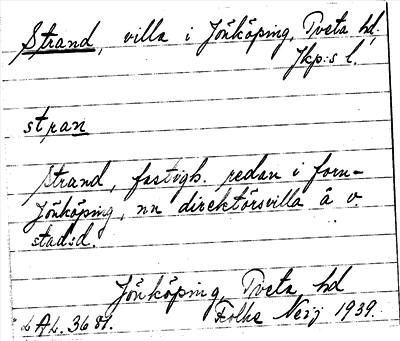 Strand, villa i Jönköping, Tveta hd,
Jkp:s l.
stran
Strand, fastigh. redan i forn-
Jönköping, nu direktörsvilla å v.
stad:d.
Jönköping, Tveta hd
LAL. 3681. Folke Neij 1939.